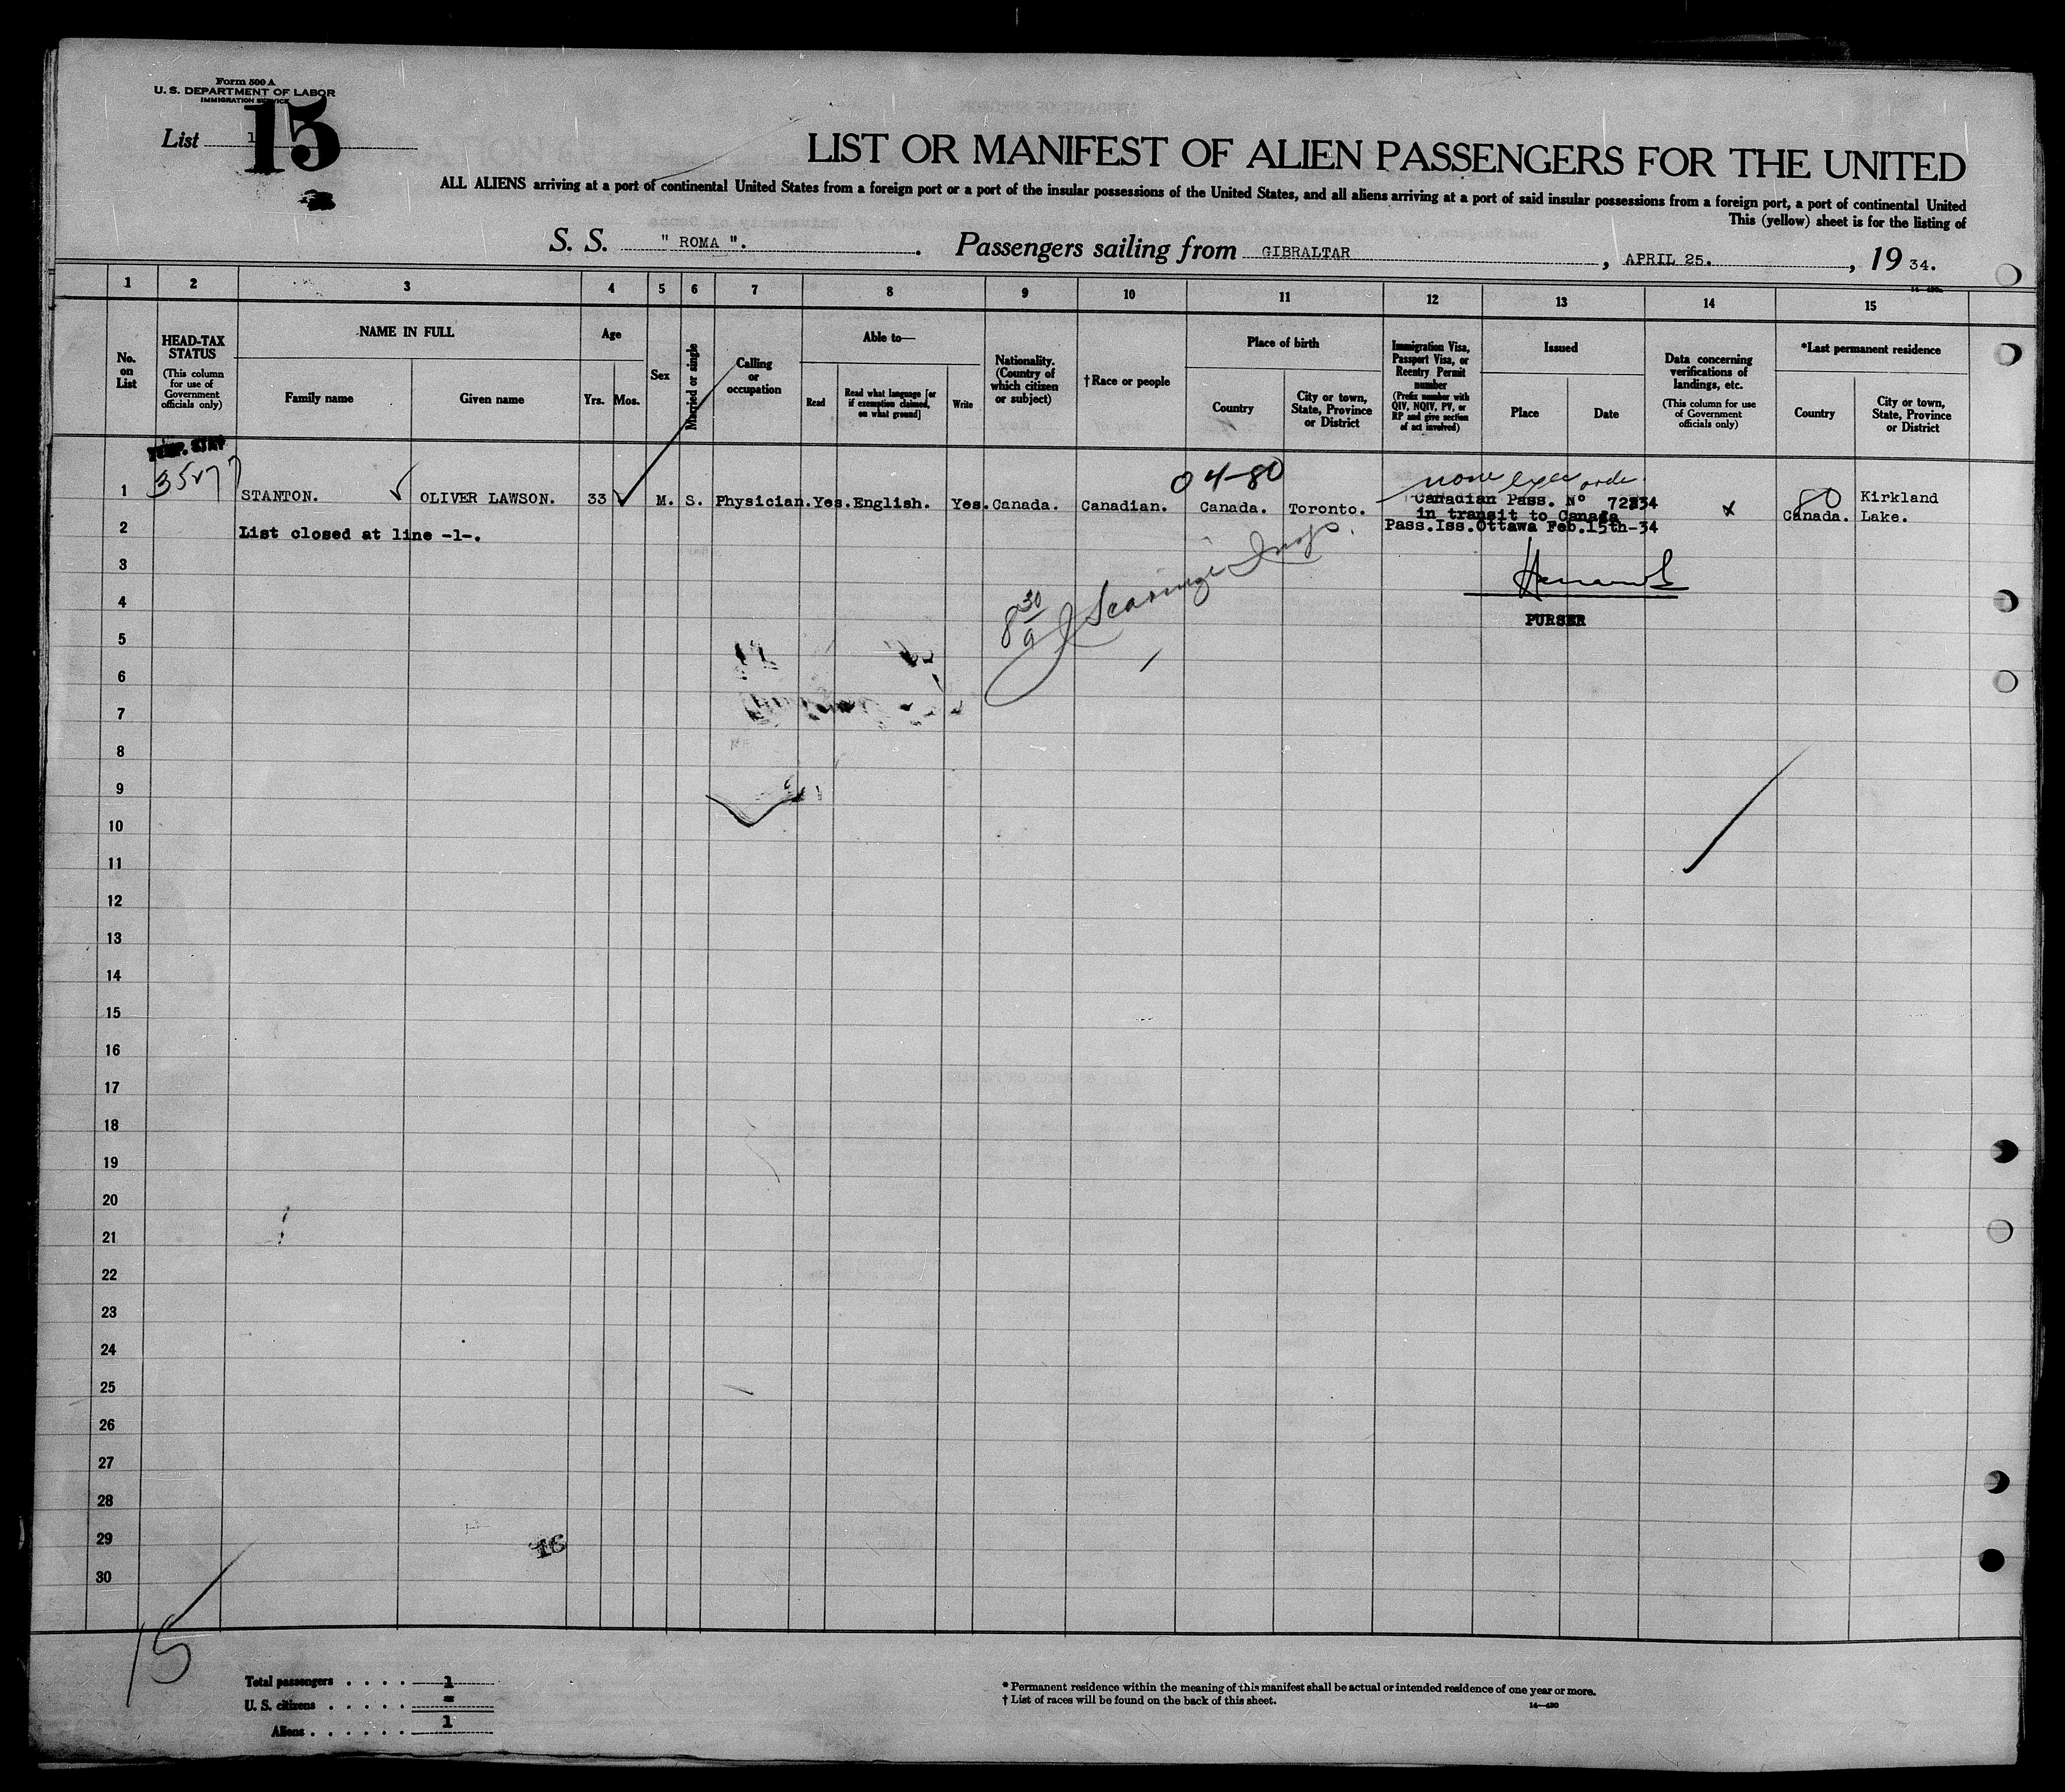 Form 500 A
U. S. DEPARTMENT OF LABOR
IMMIGRATION SERVICE
List 1
15
LIST OR MANIFEST OF ALIEN PASSENGERS FOR THE UNITED
ALL ALIENS arriving at a port of continental United States from a foreign port or a port of the insular possessions of the United States, and all aliens arriving at a port of said insular possessions from a foreign port, a port of continental United
This (yellow) sheet is for the listing of
S. S. " ROMA ". Passengers sailing from GIBRALTAR , APRIL 25. , 19 34.
1 2 3 4 5 6 7 8 9 10 11 12 13 14 15
No. on List
HEAD-TAX STATUS
(This column for use of Government officials only)
NAME IN FULL
Family name
Given name
Age
Yrs. Mos.
Sex
Married or single
Calling or occupation
Able to—
Read
Read what language [or if exemption claimed, on what ground]
Write
Nationality. (Country of which citizen or subject)
†Race or people
Place of birth
Country
City or town, State, Province or District
Immigration Visa, Passport Visa, or Reentry Permit number
(Prefix number with QIV, NQIV, PV, or RP and give section of act involved)
Issued
Place
Date
Data concerning verifications of landings, etc.
(This column for use of Government officials only)
*Last permanent residence
Country
City or town, State, Province or District
TEMP. STAY
04-80
1 STANTON. OLIVER LAWSON. 33 M. S. Physician. Yes. English. Yes. Canada. Canadian. Canada. Toronto. Canadian Pass. Nº 72234 x 80 Canada. Kirkland Lake.
in transit to Canada
Pass.Iss.Ottawa Feb.15th-34
2 List closed at line -1-.
3
4
PURSER
8 30
5
6
7
8
9
10
11
12
13
14
15
16
17
18
19
20
21
22
23
24
25
26
27
28
29
16
30
15
Total passengers . . . . 1
U. S. citizens . . . . . =
Aliens . . . . . . 1
* Permanent residence within the meaning of this manifest shall be actual or intended residence of one year or more.
† List of races will be found on the back of this sheet.
14—430